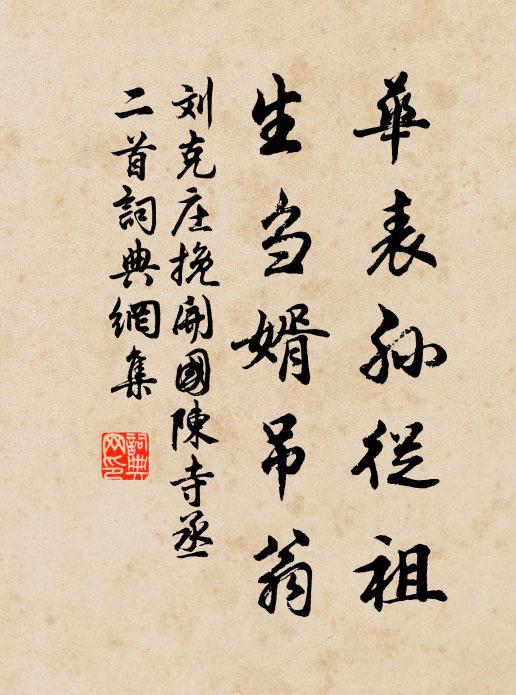 華表孙從祖
生刍婿吊翁
刘克庄挽開國陳寺丞
二首詞典網集
詞典
网印